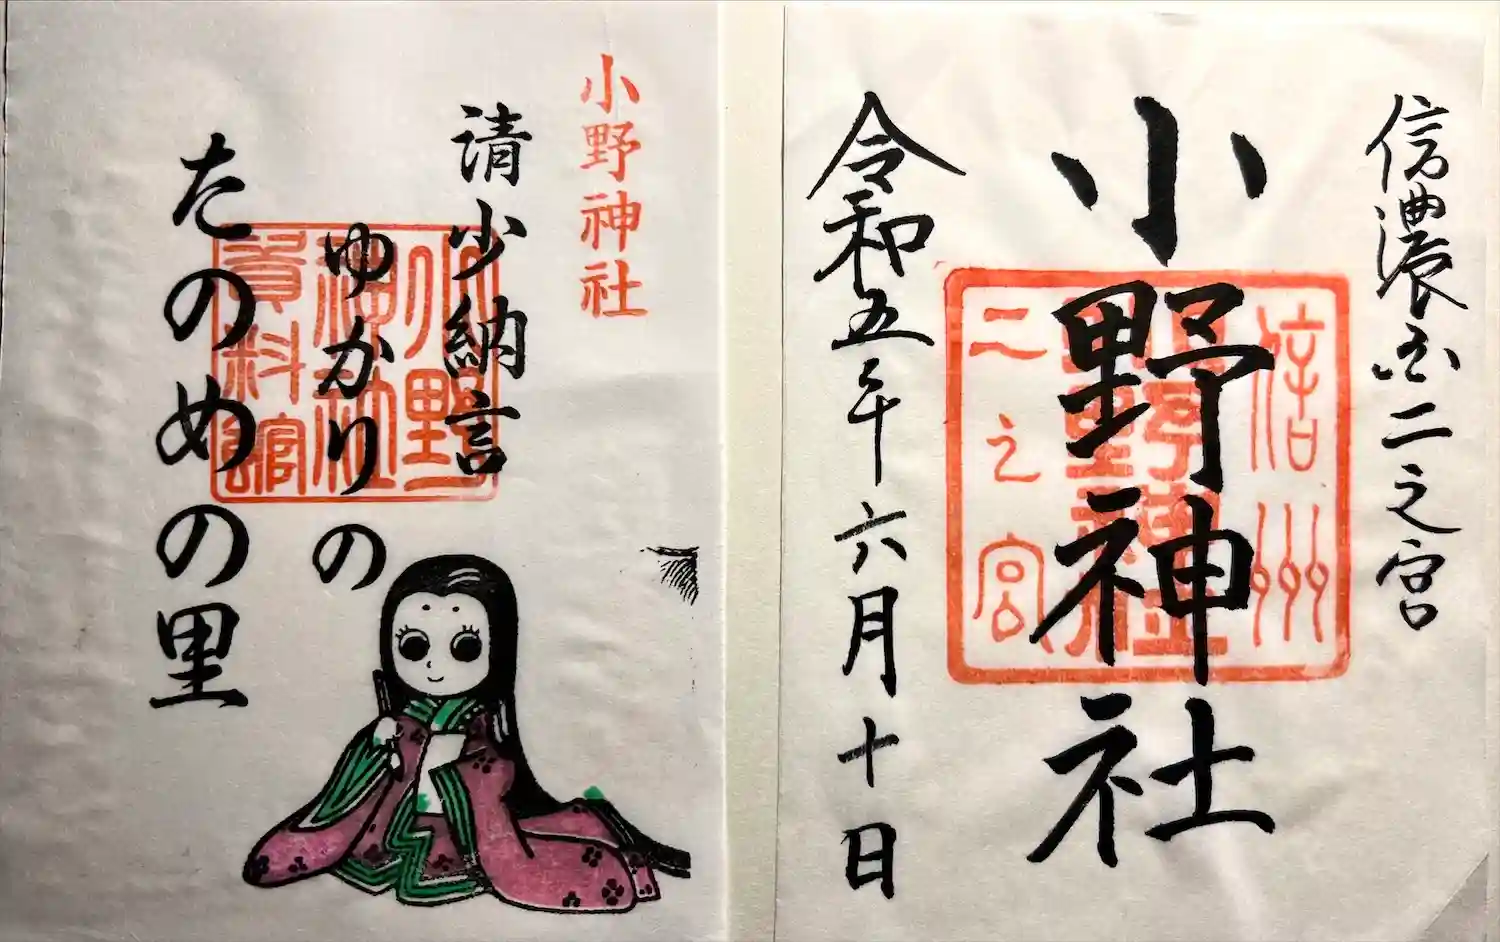 信濃国二之宮
小野神社
信州
二之宮
令和五年六月十日
小野神社
清少納言
ゆかりの
たのめの里
小野
神社
資料館